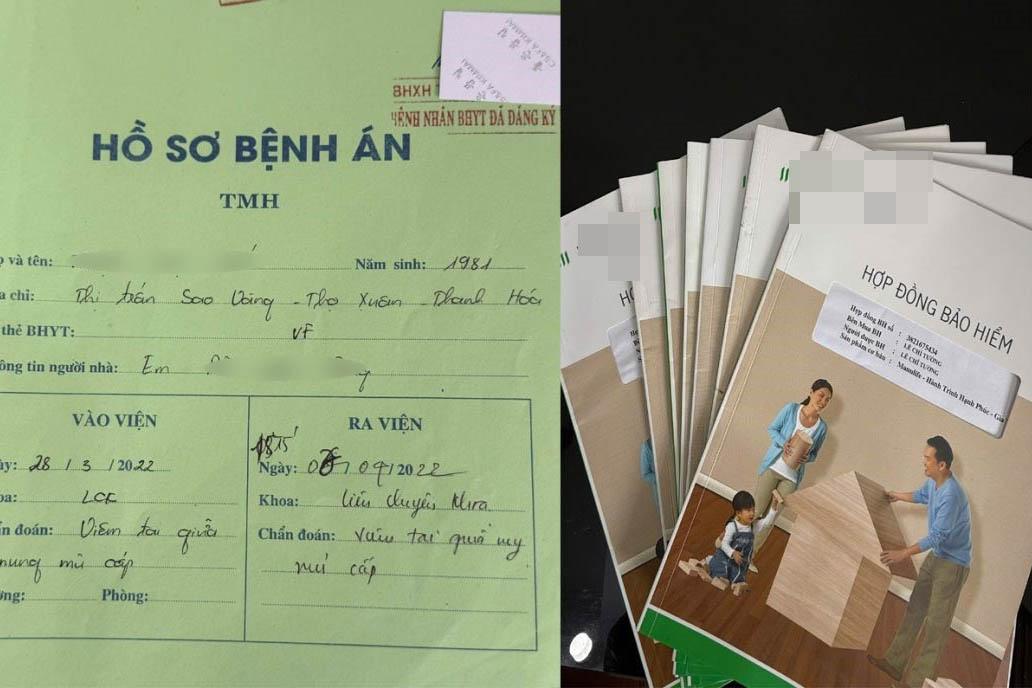 BHXH T
BỆNH NHÂN BHYT ĐÃ ĐĂNG KÝ
HỒ SƠ BỆNH ÁN
TMH
ọ và tên:
Năm sinh: 1981
a chỉ: Thị trấn Sao Vàng - Thọ Xuân - Thanh Hóa
thẻ BHYT: VF
ông tin người nhà: Em
VÀO VIỆN
ày: 28 / 3 / 2022
oa: LCK
ẩn đoán: Viêm tai giữa
nung mủ cấp
ờng: Phòng:
RA VIỆN
Ngày: 09/2022
Khoa: Liên chuyên khoa
Chẩn đoán: Viêm tai giữa
mủ cấp
HỢP ĐỒNG BẢO HIỂM
Hợp đồng BH số : 3821675434
Bên Mua BH : LÊ CHÍ TƯỜNG
Người được BH : LÊ CHÍ TƯỜNG
Sản phẩm cơ bản : Manulife - Hành Trình Hạnh Phúc - Gia